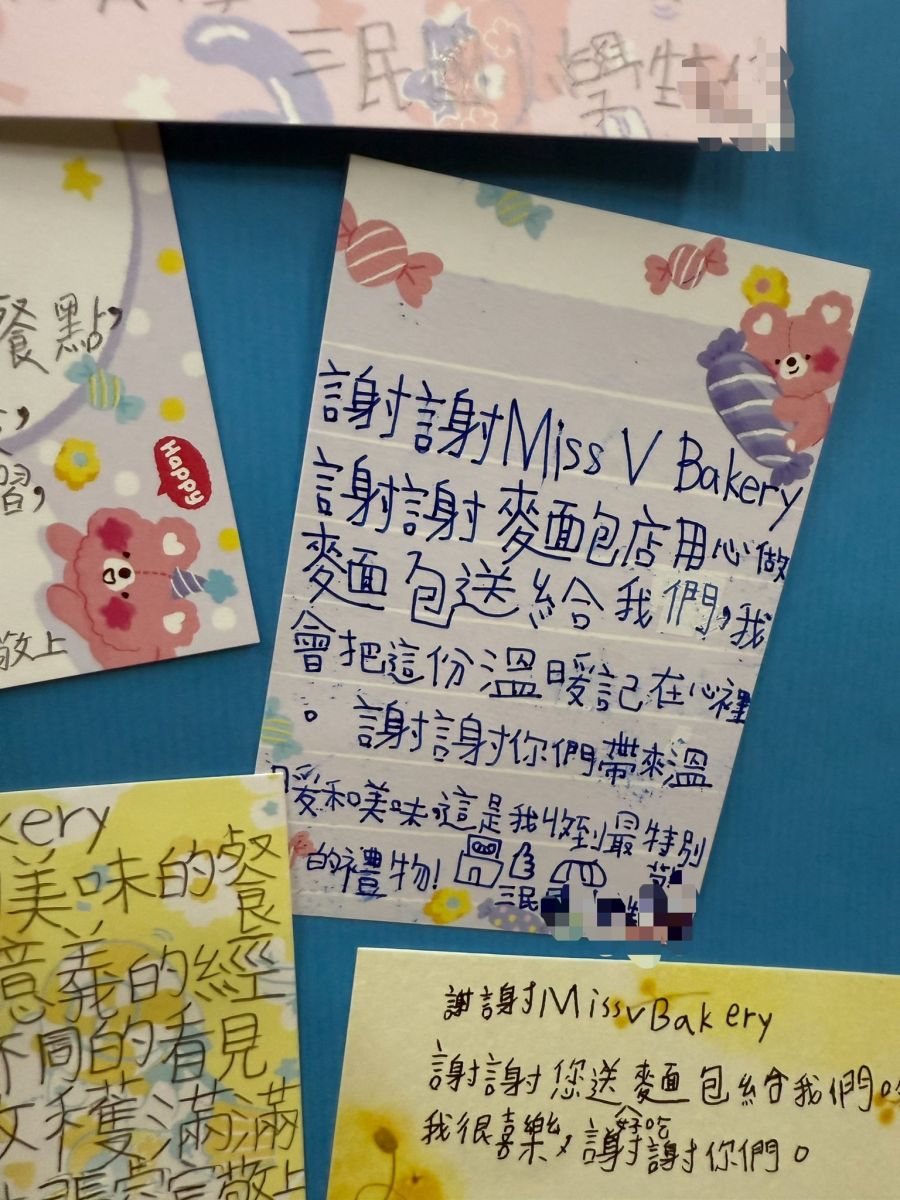 三民 學生
餐點，
習，
Happy
敬上
謝謝Miss V Bakery
謝謝麵包店用心做
麵包送給我們，我
會把這份溫暖記在心裡
。謝謝你們帶來溫
暖和美味，這是我收到最特別
的禮物！
三民
kery
美味的餐
意義的經
不同的看見
收穫滿滿
敬上
謝謝MissvBakery
謝謝您送好吃麵包給我們。
我很喜樂，謝謝你們。